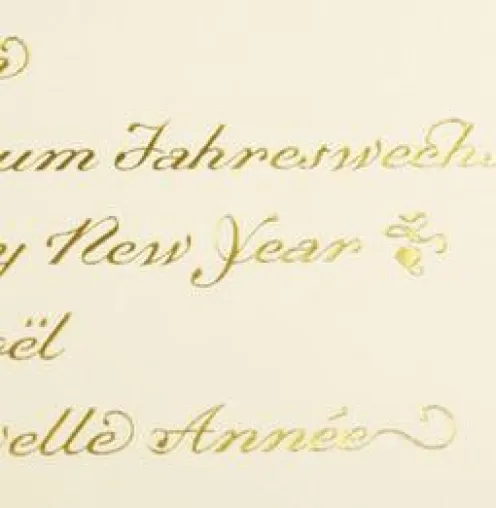 um Jahreswechs
y New Year
oël
velle Année